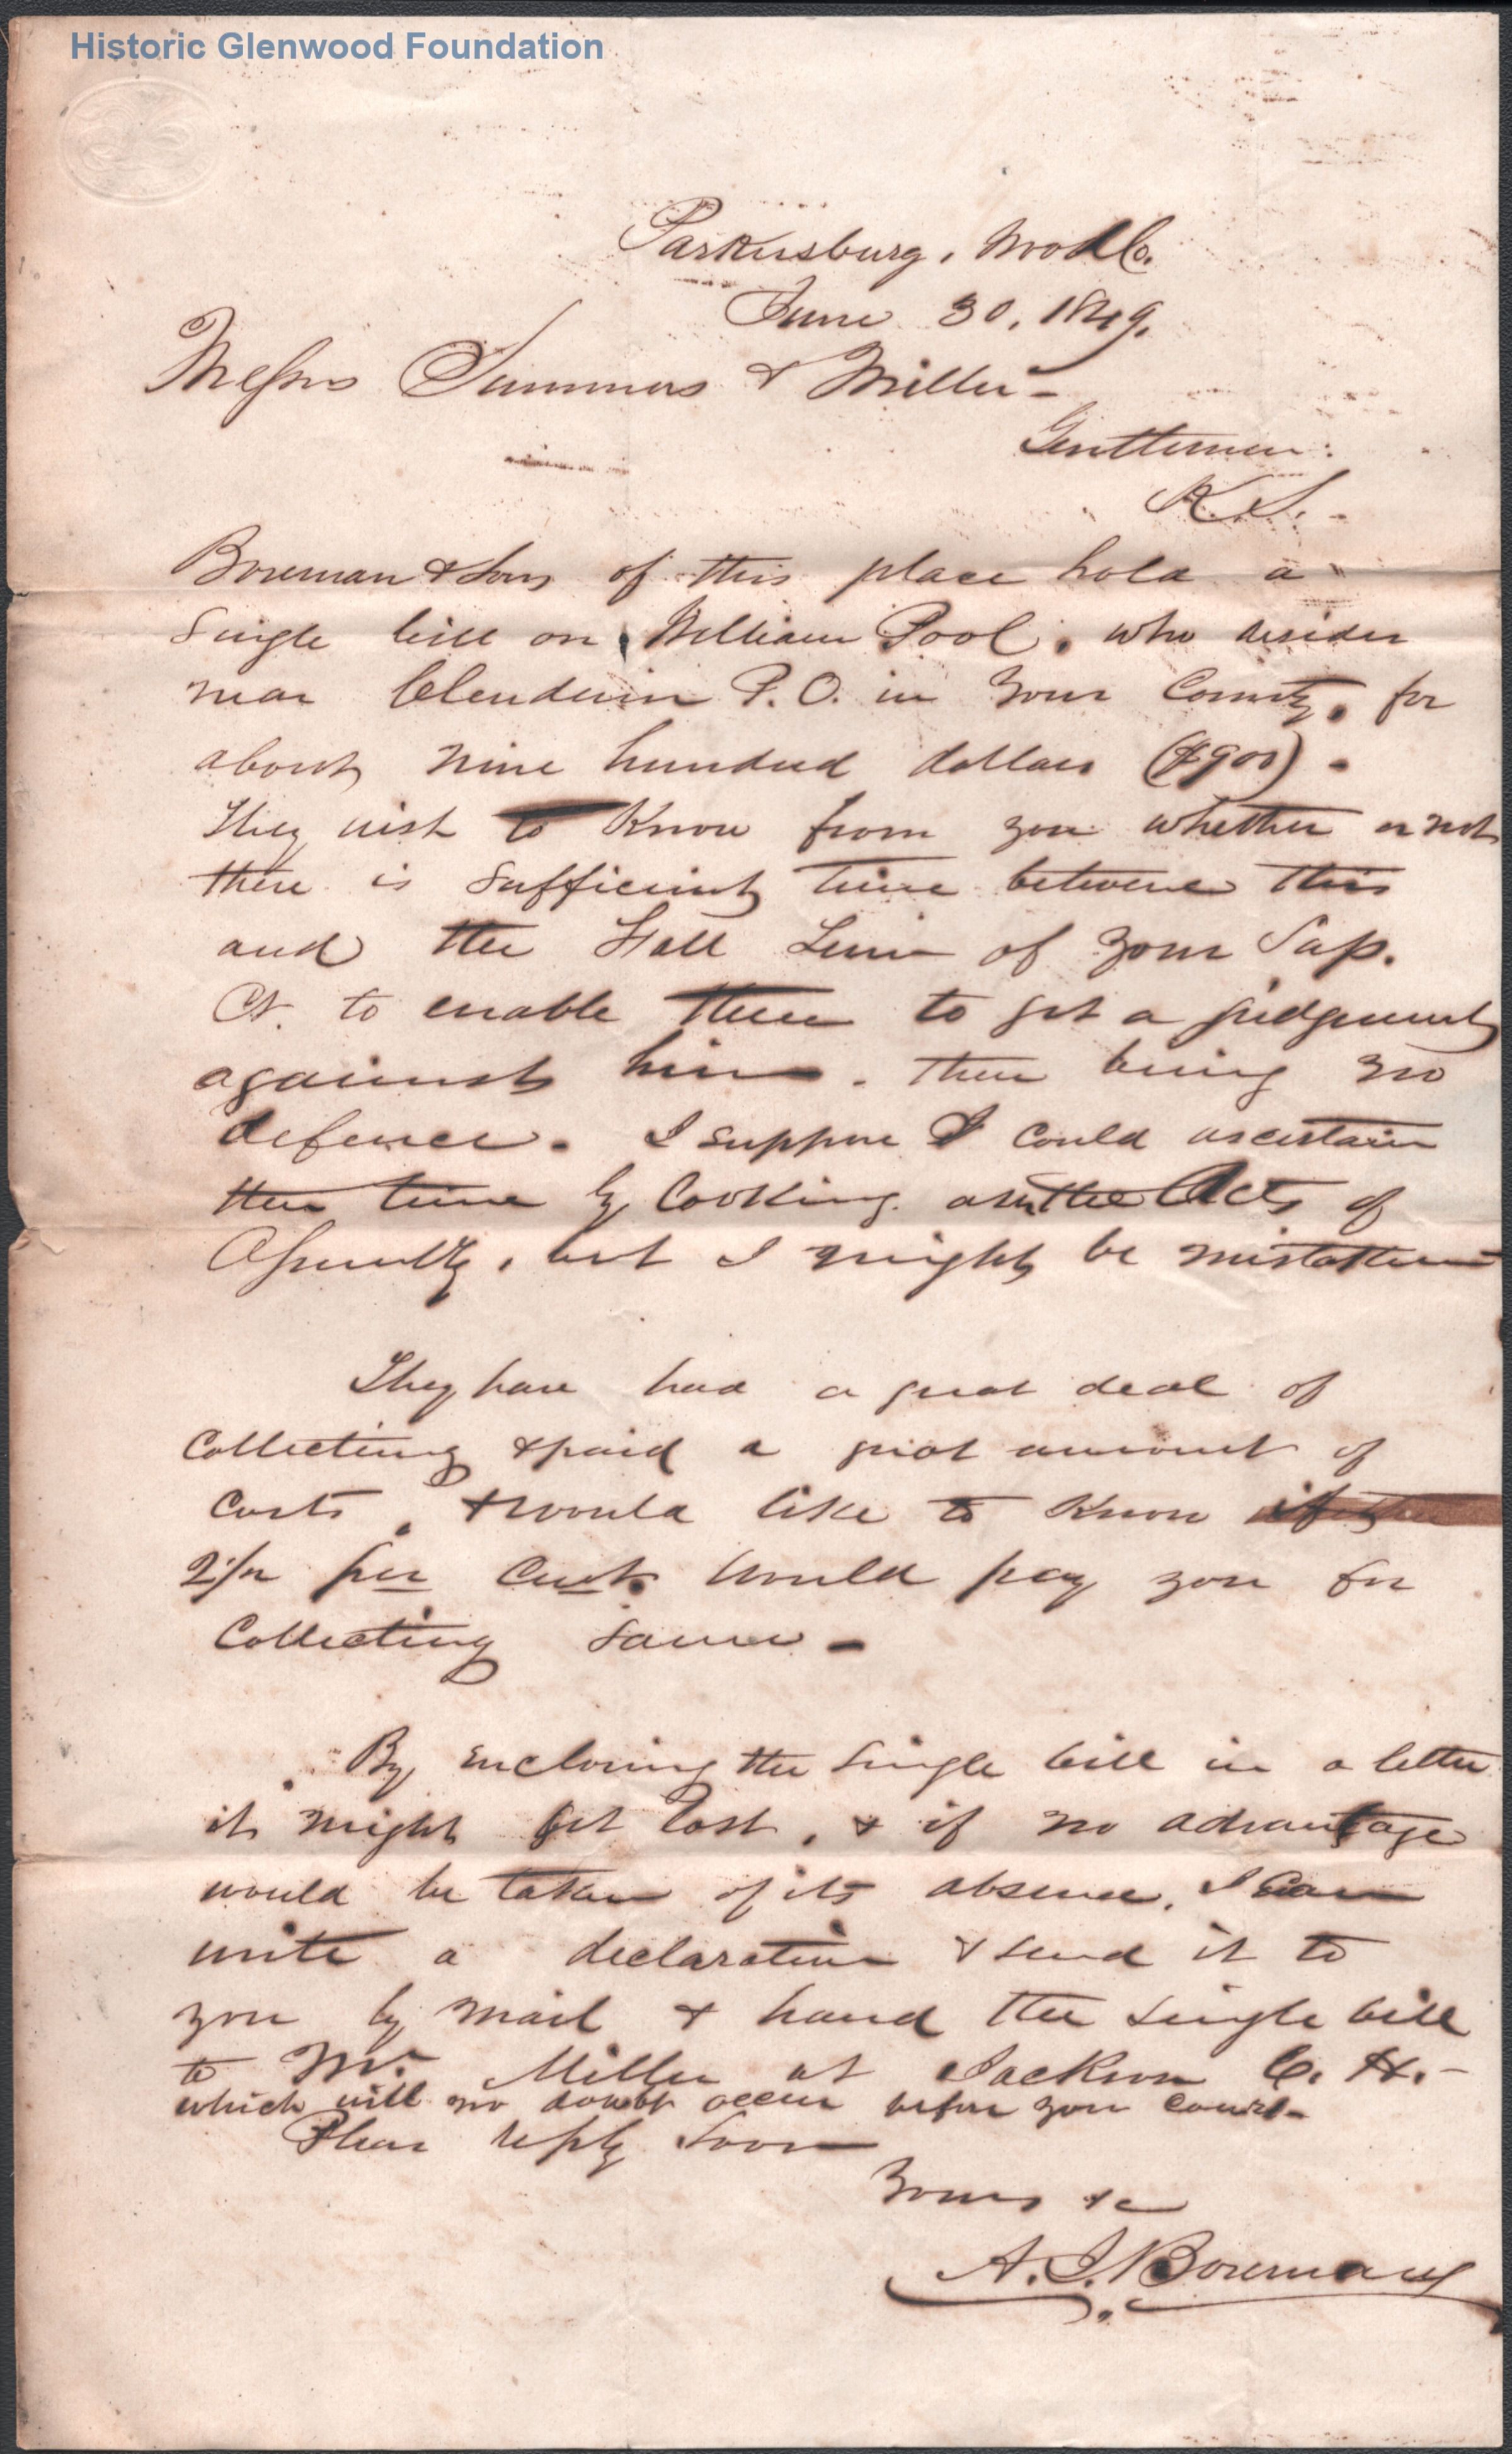 Historic Glenwood Foundation
Parkersburg, Wood Co.
June 30, 1849.
Messrs Summers & Miller -
Gentlemen:
K. S. -
Boreman & Sons of this place hold a
Single bill on William Pool, who resides
near Clendenin P.O. in your County, for
about nine hundred dollars ($900) -
They wish to Know from you whether or not
there is sufficient time between this
and the Fall Term of your Sup.
Ct. to enable them to get a judgement
against him - there being no
defence. I suppose I could ascertain
the time by looking at the Acts of
Assembly, but I might be mistaken
They have had a great deal of
Collecting & paid a great amount of
Costs, & would like to know if
2 1/2 per cent. would pay you for
Collecting same -
By enclosing the single bill in a letter
it might get lost, & if no advantage
would be taken of its absence, I can
write a declaration & send it to
you by mail & hand the single bill
to Mr. Miller at Jackson C. H. -
which will no doubt occur before your court -
Please reply soon
Yours &c
A. I. Boreman